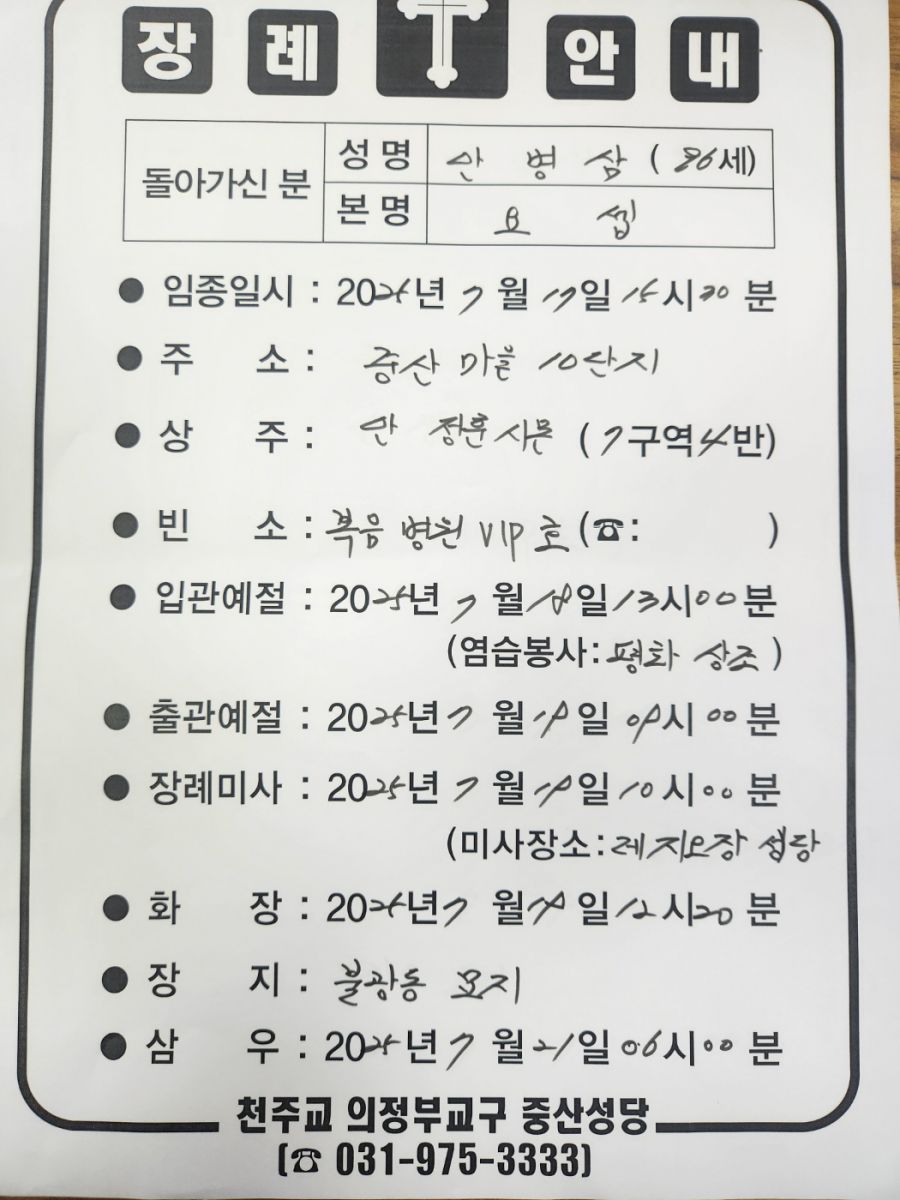 장 례 안 내
돌아가신 분 성 명 안 병 삼 ( 86세)
본 명 요 셉
● 임종일시 : 2025년 7 월 17일 15시30 분
● 주 소 : 중산 마을 10단지
● 상 주 : 안 정훈 시몬 ( 7구역4반)
● 빈 소 : 복음 병원 VIP 호 (☎: )
● 입관예절 : 2025년 7 월 18일 13시00 분
(염습봉사: 평화 상조 )
● 출관예절 : 2025년 7 월 19일 09시 00 분
● 장례미사 : 2025년 7 월 19일 10 시 00 분
(미사장소: 레지오장 성당
● 화 장 : 2025년 7 월 19일 12시20 분
● 장 지 : 불광동 묘지
● 삼 우 : 2025년 7 월 21일 06시00 분
천주교 의정부교구 중산성당
(☎ 031-975-3333)